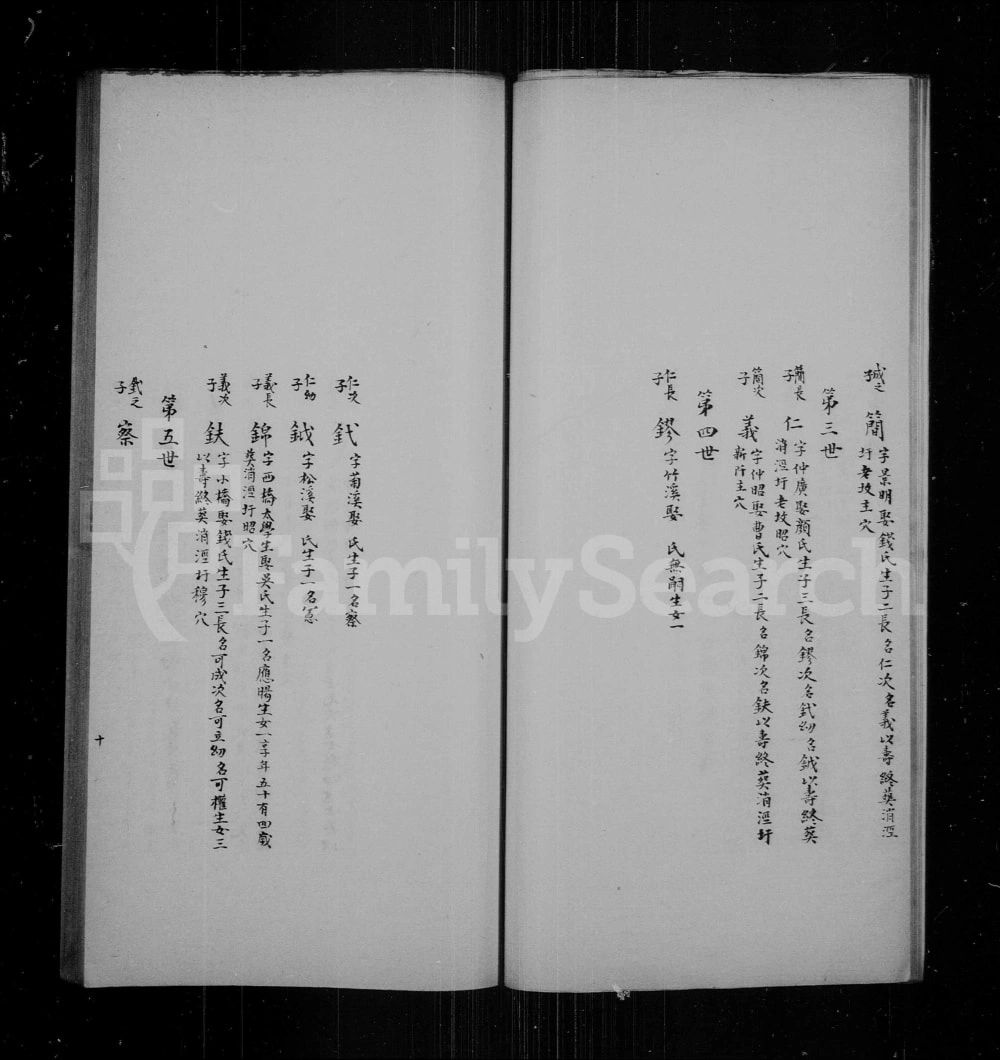 城之子 簡 字景明娶錢氏生子二長名仁次名義以壽終葬消涇
圩老坟主穴
第三世
簡長子 仁 字仲廣娶顏氏生子三長名鏐次名釴幼名鉞以壽終葬
消涇圩老坟昭穴
簡次子 義 字仲昭娶曹氏生子二長名錦次名鈇以壽終葬消涇圩
新阡主穴
第四世
仁長子 鏐 字竹溪娶 氏無嗣生女一
仁次子 釴 字菊溪娶 氏生子一名察
仁幼子 鉞 字松溪娶 氏生子一名憲
義長子 錦 字西橋太學生娶吳氏生子一名應暘生女一享年五十有四歲
葬消涇圩昭穴
義次子 鈇 字小橋娶錢氏生子三長名可成次名可立幼名可權生女三
以壽終葬消涇圩穆穴
第五世
釴之子 察
十
FamilySearch